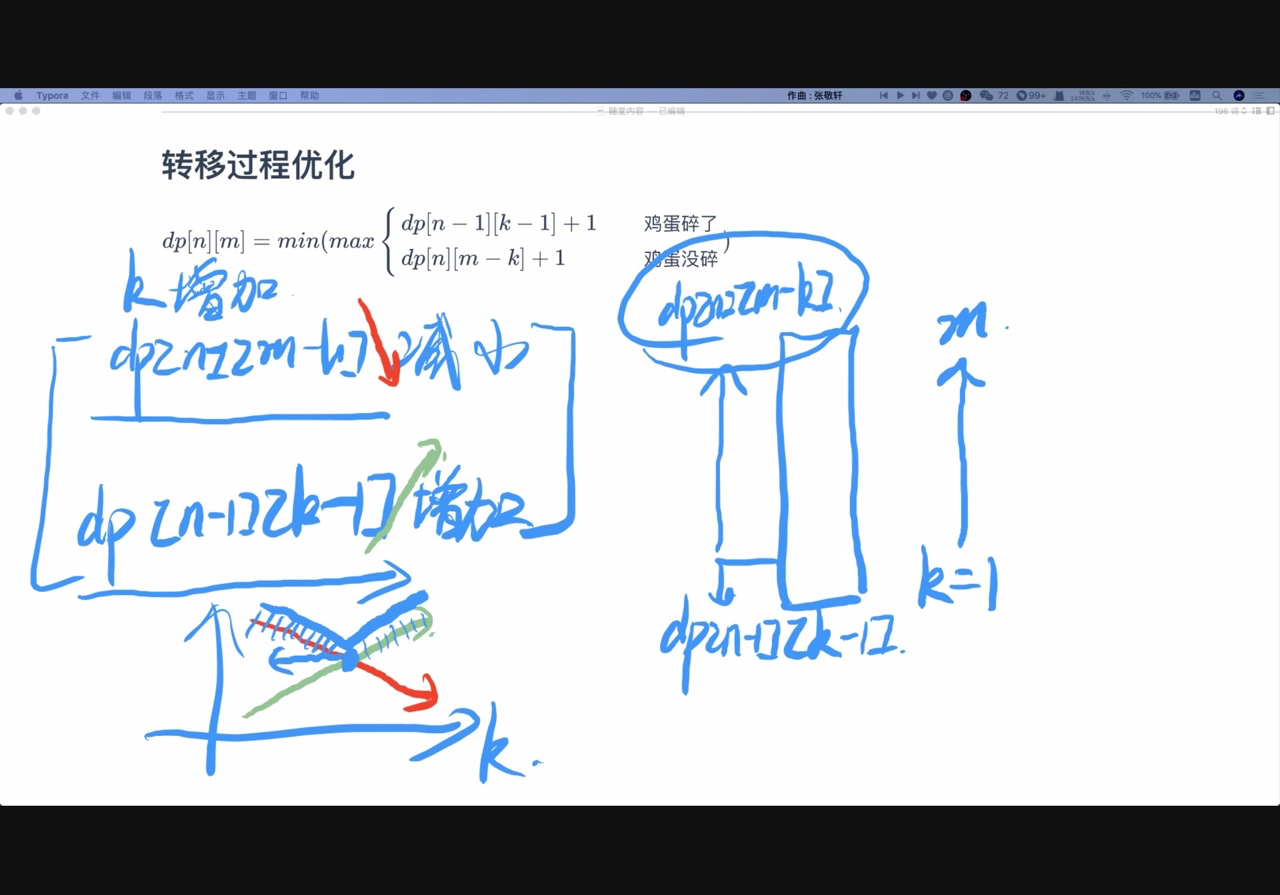 Typora 文件 编辑 段落 格式 显示 主题 窗口 帮助 作曲 : 张敬轩 72 99+ 100%
随堂内容 — 已编辑
196 词
转移过程优化
dp[n][m] = min(max { dp[n − 1][k − 1] + 1 鸡蛋碎了
dp[n][m − k] + 1 鸡蛋没碎 )
k 增加
dp[n][m-k] 减小
dp[n-1][k-1] 增加
k.
dp[n][m-k].
dp[n-1][k-1].
m.
k=1